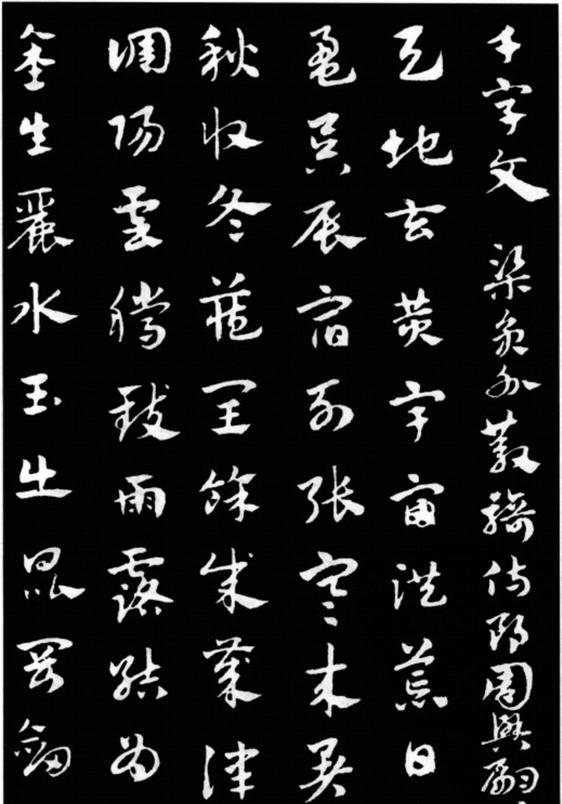 千字文 梁員外散騎侍郎周興嗣
天地玄黄宇宙洪荒日
盈昃辰宿列張寒来暑
秋收冬藏閏餘成歲律
調陽雲騰致雨露結為
金生麗水玉出崑岡劍